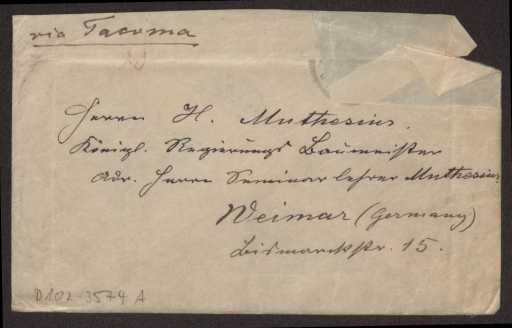 via Tacoma
Herrn H. Muthesius.
Königl. Regierungs Baumeister
Adr. Herrn Seminarlehrer Muthesius
Weimar (Germany)
Bismarckstr. 15.
D102-3574 A